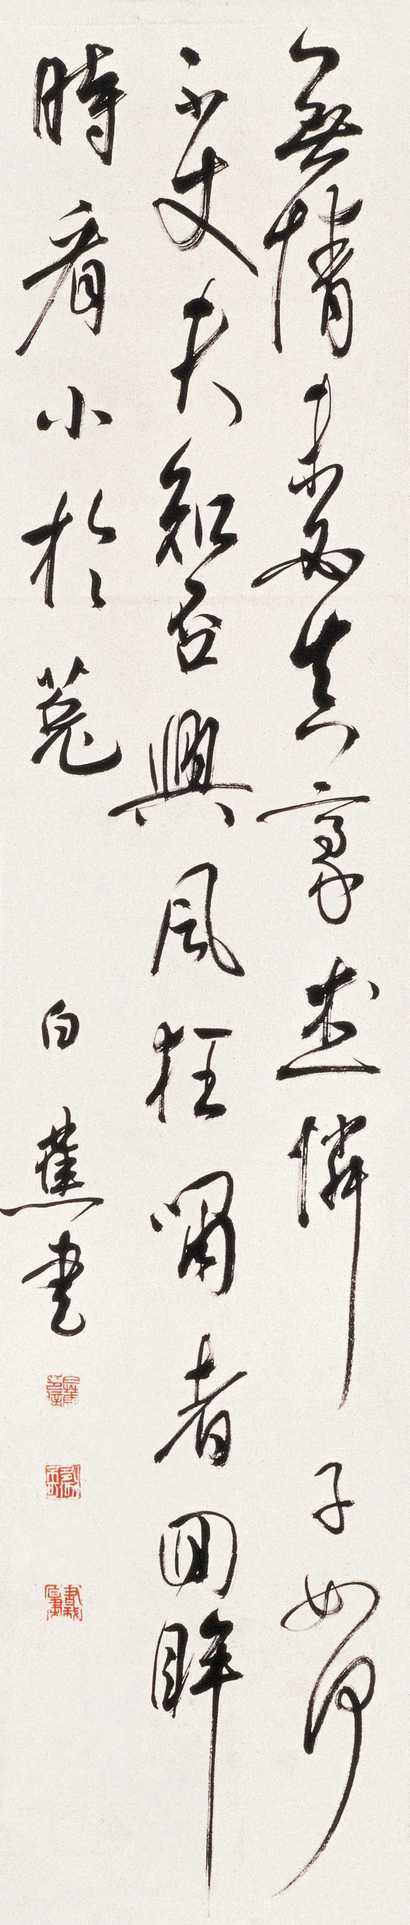 無情未必真豪傑憐子如何
不丈夫知否興風狂嘯者回眸
時看小於菟
白蕉書